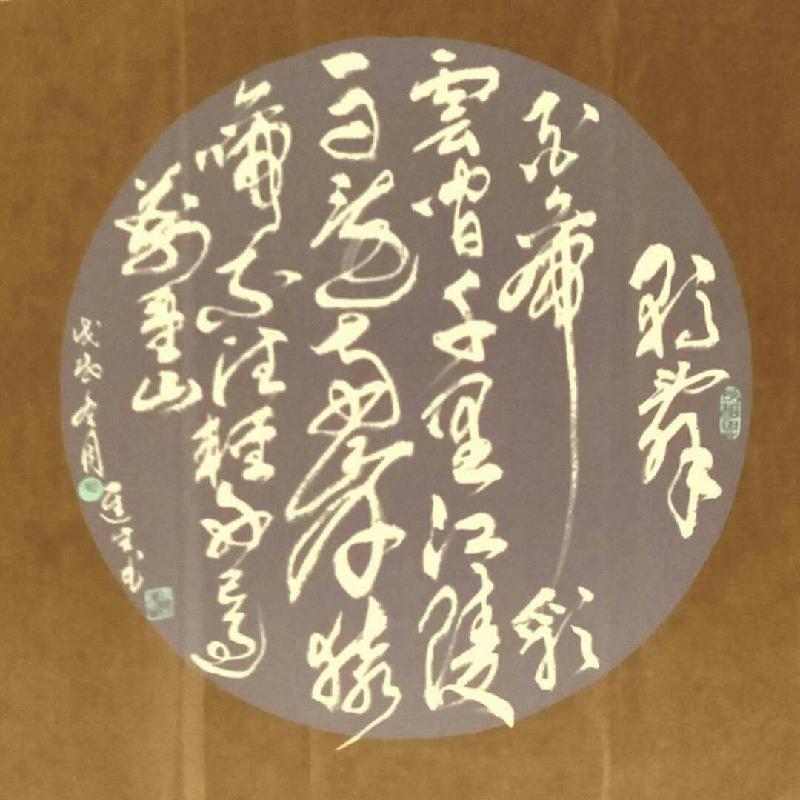 朝辞
白帝彩
雲間千里江陵
一日還兩岸猿
啼不住輕舟已過
萬重山
戊戌冬月